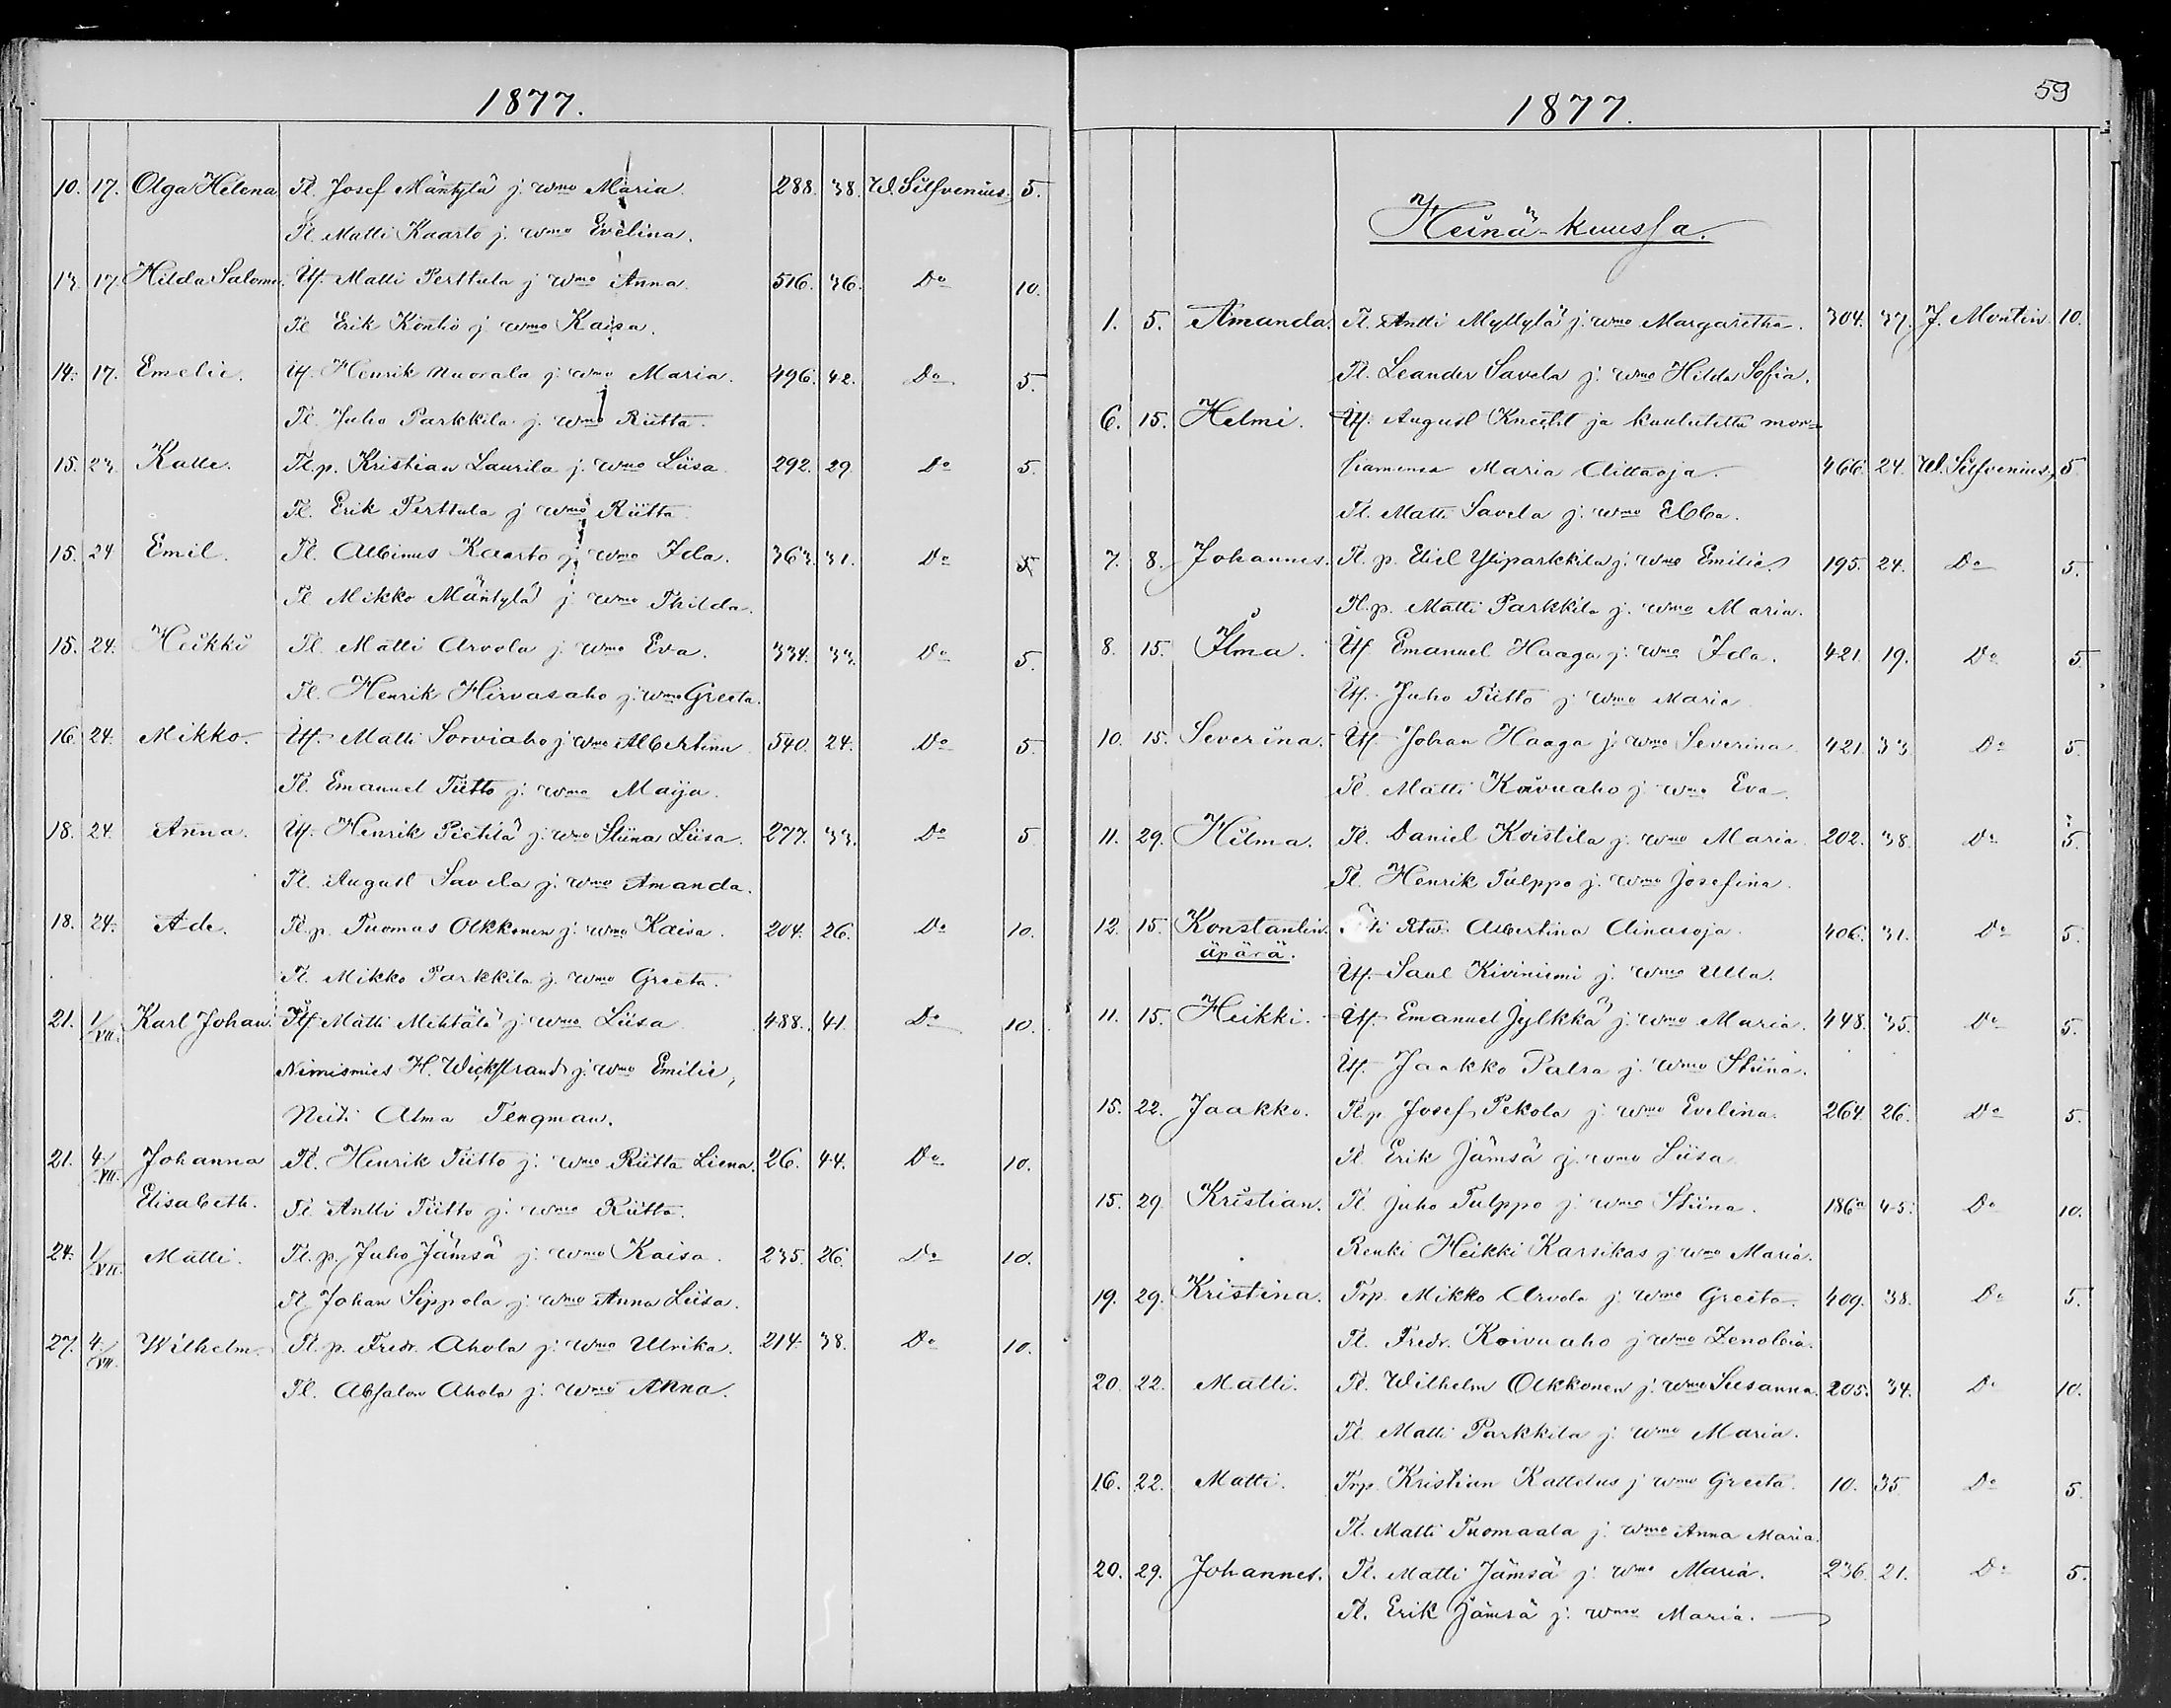 1877.
10. 17. Olga Helena Tl. Josef Mäntylä j. wmo Maria. 288. 38. W. Silfvenius. 5.
Tl. Matti Kaarto j. wmo Evelina.
13. 17. Hilda Salome. Itf. Matti Perttula j wmo Anna. 516. 36. Do 10.
Tl Erik Kontio j wmo Kaisa.
14. 17. Emelie. Itf. Henrik Nuorala j. wmo Maria. 496. 42. Do 5.
Tl. Juho Parkkila j. wmo Riitta.
15. 23. Kalle. Tl.p. Kristian Laurila j. wmo Liisa. 292. 29. Do 5.
Tl. Erik Perttula j wmo Riitta
15. 24 Emil. Tl. Albinus Kaarto j. wmo Ida. 363. 31. Do 5
Tl Mikko Mäntylä j wmo Thilda.
15. 24. Heikki Tl. Matti Arvola j. wmo Eva. 334. 33. Do 5.
Tl. Henrik Hirvasaho j. wmo Greeta.
16. 24. Mikko. Itf. Matti Sorviaho j wmo Albertina 540. 24. Do 5.
Tl. Emanuel Tiitto j. wmo Maija.
18. 24. Anna. Itf. Henrik Pietilä j. wmo Stiina Liisa. 277. 33. Do 5
Tl. August Savela j. wmo Amanda.
18. 24. Ade. Tl.p. Tuomas Olkkonen j. wmo Kaisa. 204. 26. Do 10.
Tl. Mikko Parkkila j. wmo Greeta.
21. 1/VII. Karl Johan. Itf Matti Mehtälä j. wmo Liisa 488. 41. Do 10.
Nimismies H. Wickstrand j. wmo Emilie,
Neiti Alma Tengman.
21. 4/VII. Johanna Tl. Henrik Tiitto j. wmo Riitta Liena. 26. 44. Do 10.
Elisabeth. Tl. Antti Tiitto j. wmo Riitta.
24. 1/VII. Matti. Tl.p. Juho Jämsä j. wmo Kaisa. 235. 26. Do 10.
Tl. Johan Sippola j. wmo Anna Liisa.
27. 4/VII. Wilhelm. Tl.p. Fredr. Ahola j. wmo Ulrika. 214. 38. Do 10.
Tl. Absalon Ahola j. wmo Anna.
59
1877.
Heinä-kuussa.
1. 5. Amanda. Tl. Antti Myllylä j. wmo Margaretha. 304. 37. J. Montin. 10.
Tl. Leander Savela j. wmo Hilda Sofia.
6. 15. Helmi. Itf. August Knecht ja kuulutettu mor=
siamensa Maria Aittaoja. 466. 24. W. Silfvenius, 5.
Tl. Matti Savela j. wmo Ebba.
7. 8. Johannes. Tl. p. Eliel Yliparkkila j. wmo Emilie. 195. 24. Do 5.
Tl.p. Matti Parkkila j. wmo Maria.
8. 15. Ilma. Itf Emanuel Haaga j. wmo Ida. 421. 19. Do 5
Itf. Juho Tiitto j wmo Maria
10. 15. Severina. Itf. Johan Haaga j. wmo Severina. 421. 33 Do 5.
Tl. Matti Koivuaho j. wmo Eva.
11. 29. Hilma. Tl. Daniel Koistila j. wmo Maria 202. 38. Do 5.
Tl. Henrik Tulppo j. wmo Josefina.
12. 15. Konstantin. Albertina Ainasoja. 406. 31. Do 5.
äpärä. Itf. Saul Kiviniemi j. wmo Ulla.
11. 15. Heikki. Itf. Emanuel Jylkkä j. wmo Maria. 448. 35. Do 5.
Itf. Jaakko Palra j. wmo Stiina.
15. 22. Jaakko. Tl.p Josef Pekola j. wmo Evelina. 264. 26. Do 5.
Tl Erik Jämsä j. wmo Liisa
15. 29. Kristian. Tl. Juho Tulppo j. wmo Stiina. 186a 45. Do 10.
Renki Heikki Karsikas j. wmo Maria.
19. 29. Kristina. Trp. Mikko Arvola j. wmo Greeta. 409. 38. Do 5.
Tl. Fredr. Koivuaho j wmo Zenobia.
20. 22. Matti. Tl. Wilhelm Olkkonen j. wmo Susanna. 205. 34. Do 10.
Tl Matti Parkkila j. wmo Maria.
16. 22. Matti. Trp. Kristian Kattelus j wmo Greeta. 10. 35 Do 5.
Tl. Matti Tuomaala j. wmo Anna Maria.
20. 29. Johannes. Tl. Matti Jämsä j. wmo Maria. 236. 21. Do 5.
Tl. Erik Jämsä j. wmo Maria.